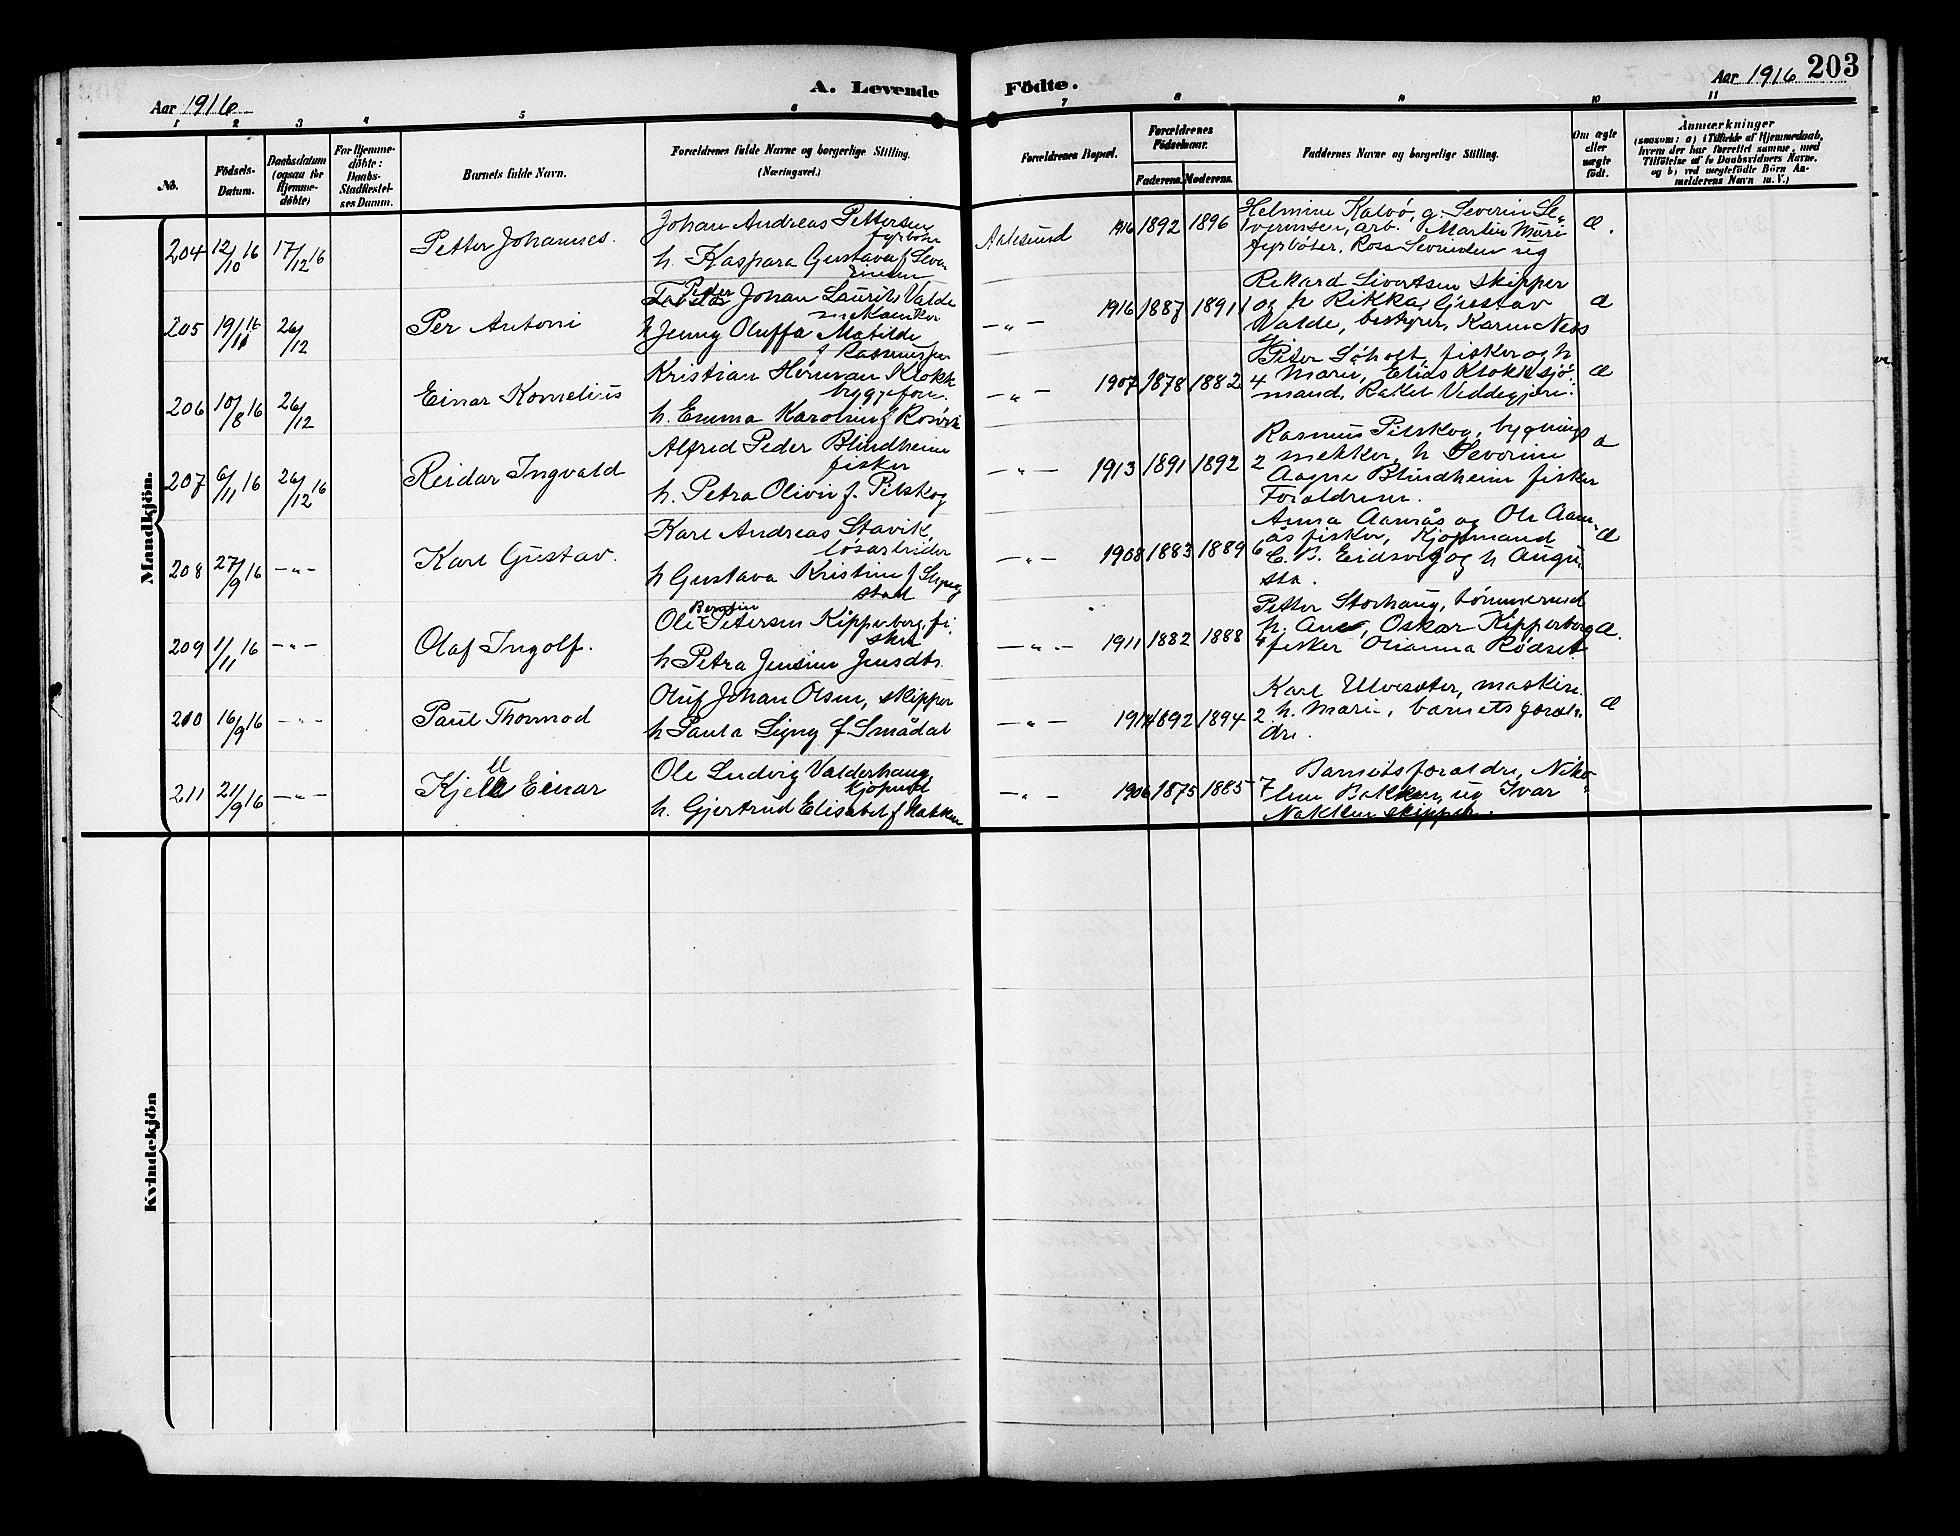 Aar 1916
A. Levende
Födte.
Aar 1916 203
1 2 3 4 5 6 7 8 9 10 11
No.
Födsels-
Datum.
Daabsdatum
(ogsaa for
Hjemme-
döbte)
For Hjemme-
döbte:
Daabs-
Stadfæstel-
ses Datum.
Barnets fulde Navn.
Forældrenes fulde Navne og borgerlige Stilling.
(Næringsvei.)
Forældrenes Bopæl.
Forældrenes
Födselsaar.
Faderens. Moderens.
Faddernes Navne og borgerlige Stilling.
Om ægte
eller
uægte
födt.
Anmærkninger
(saasom: a) i Tilfælde af Hjemmedaab,
hvem der har forrettet samme, med
Tilföielse af to Daabsvidners Navne,
og b) ved uægtefödte Börn An-
melderens Navn m. V.)
Mandkjöm.
204 12/10 16 17/12 16
Petter Johannes.
Johan Andreas Pettersen
fyrbøter
h. Kaspara Gustava f. Seve-
rinsen
Aalesund 1916 1892 1896
Helmine Kalvø, g. Severin Se-
verinsen, arb. Martin Myre
fyrbøter, Severinsen ug
æ.
205 19/11 16 26/12
Per Antoni
Peder
Johan Laurits Valde
mekaniker
h Jenny Oluffa Matilde
f Rasmussen
— „ — 1916 1887 1891 1
Rikard Sivertsen skipper
og h Rikka, Gustav
Valde, bestyrer, Karen Ness
ug
æ
206 10/8 16 26/12
Einar Kornelius
Kristian Herman Klokk
byggefor.
h. Emma Karoline f Rosvik
— „ — 1907 1878 1882 4
Peter Søholt, fisker og h
Marie, Elias Klokk sjø-
mand, Rakel Veddegjerde.
æ
207 6/11 16 26/12 16
Reidar Ingvald
Alfred Peder Blindheim
fisker
h. Petra Olivie f. Pilskog
— „ — 1913 1891 1892 2
Rasmus Pilskog, bygnings
snekker, h Severine
Aagne Blindheim fisker
Forældrene.
æ
208 27/9 16 — „ —
Karl Gustav.
Karl Andreas Stavik,
løsarbeider
h Gustava Kristine f
stad
— „ — 1908 1883 1889 6
Anna Aamås og Ole Aam-
ås fisker, Kjøpmand
E. B. Eidsvig og h Augu-
sta.
æ
209 1/11 16 — „ —
Olaf Ingolf.
Berntin
Ole Petersen Kipperberg, fi-
sker
h Petra Jensine Jensdtr.
— „ — 1911 1882 1888 4
Petter Storhaug, tømmermd
h. Ane, Oskar Kipperberg
fisker Olianna Rødset.
æ.
210 16/9 16 — „ —
Paul Thormod
Oluf Johan Olsen, skipper
h Paula Signy f Smådal
— „ — 1914 1892 1894 2
Karl Ulvesæter, maskin.
h. Marie, barnets foræl-
dre.
æ
211 21/9 16 — „ —
ll
Kjell Einar
Ole Ludvig Valderhaug,
kjøpmd
h. Gjertrud Elisabet f Nakken
— „ — 1906 1875 1885 7
Barnets forældre, Niko-
line Bakken, ug Ivar
Nakken skipper.
Kvindekjön